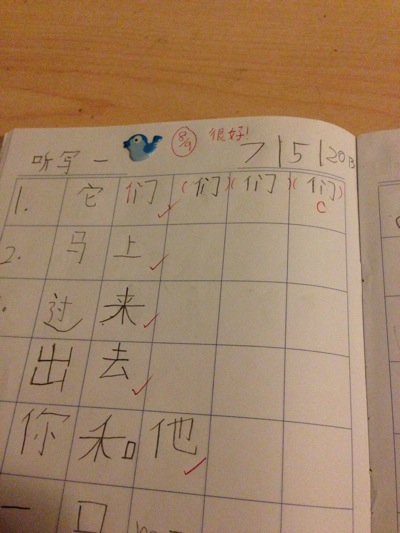 听写一 8/9 很好! 7|5|2013
1. 它们 (们)(们)(们)
C
2. 马上
过来
出去
你和他
一口